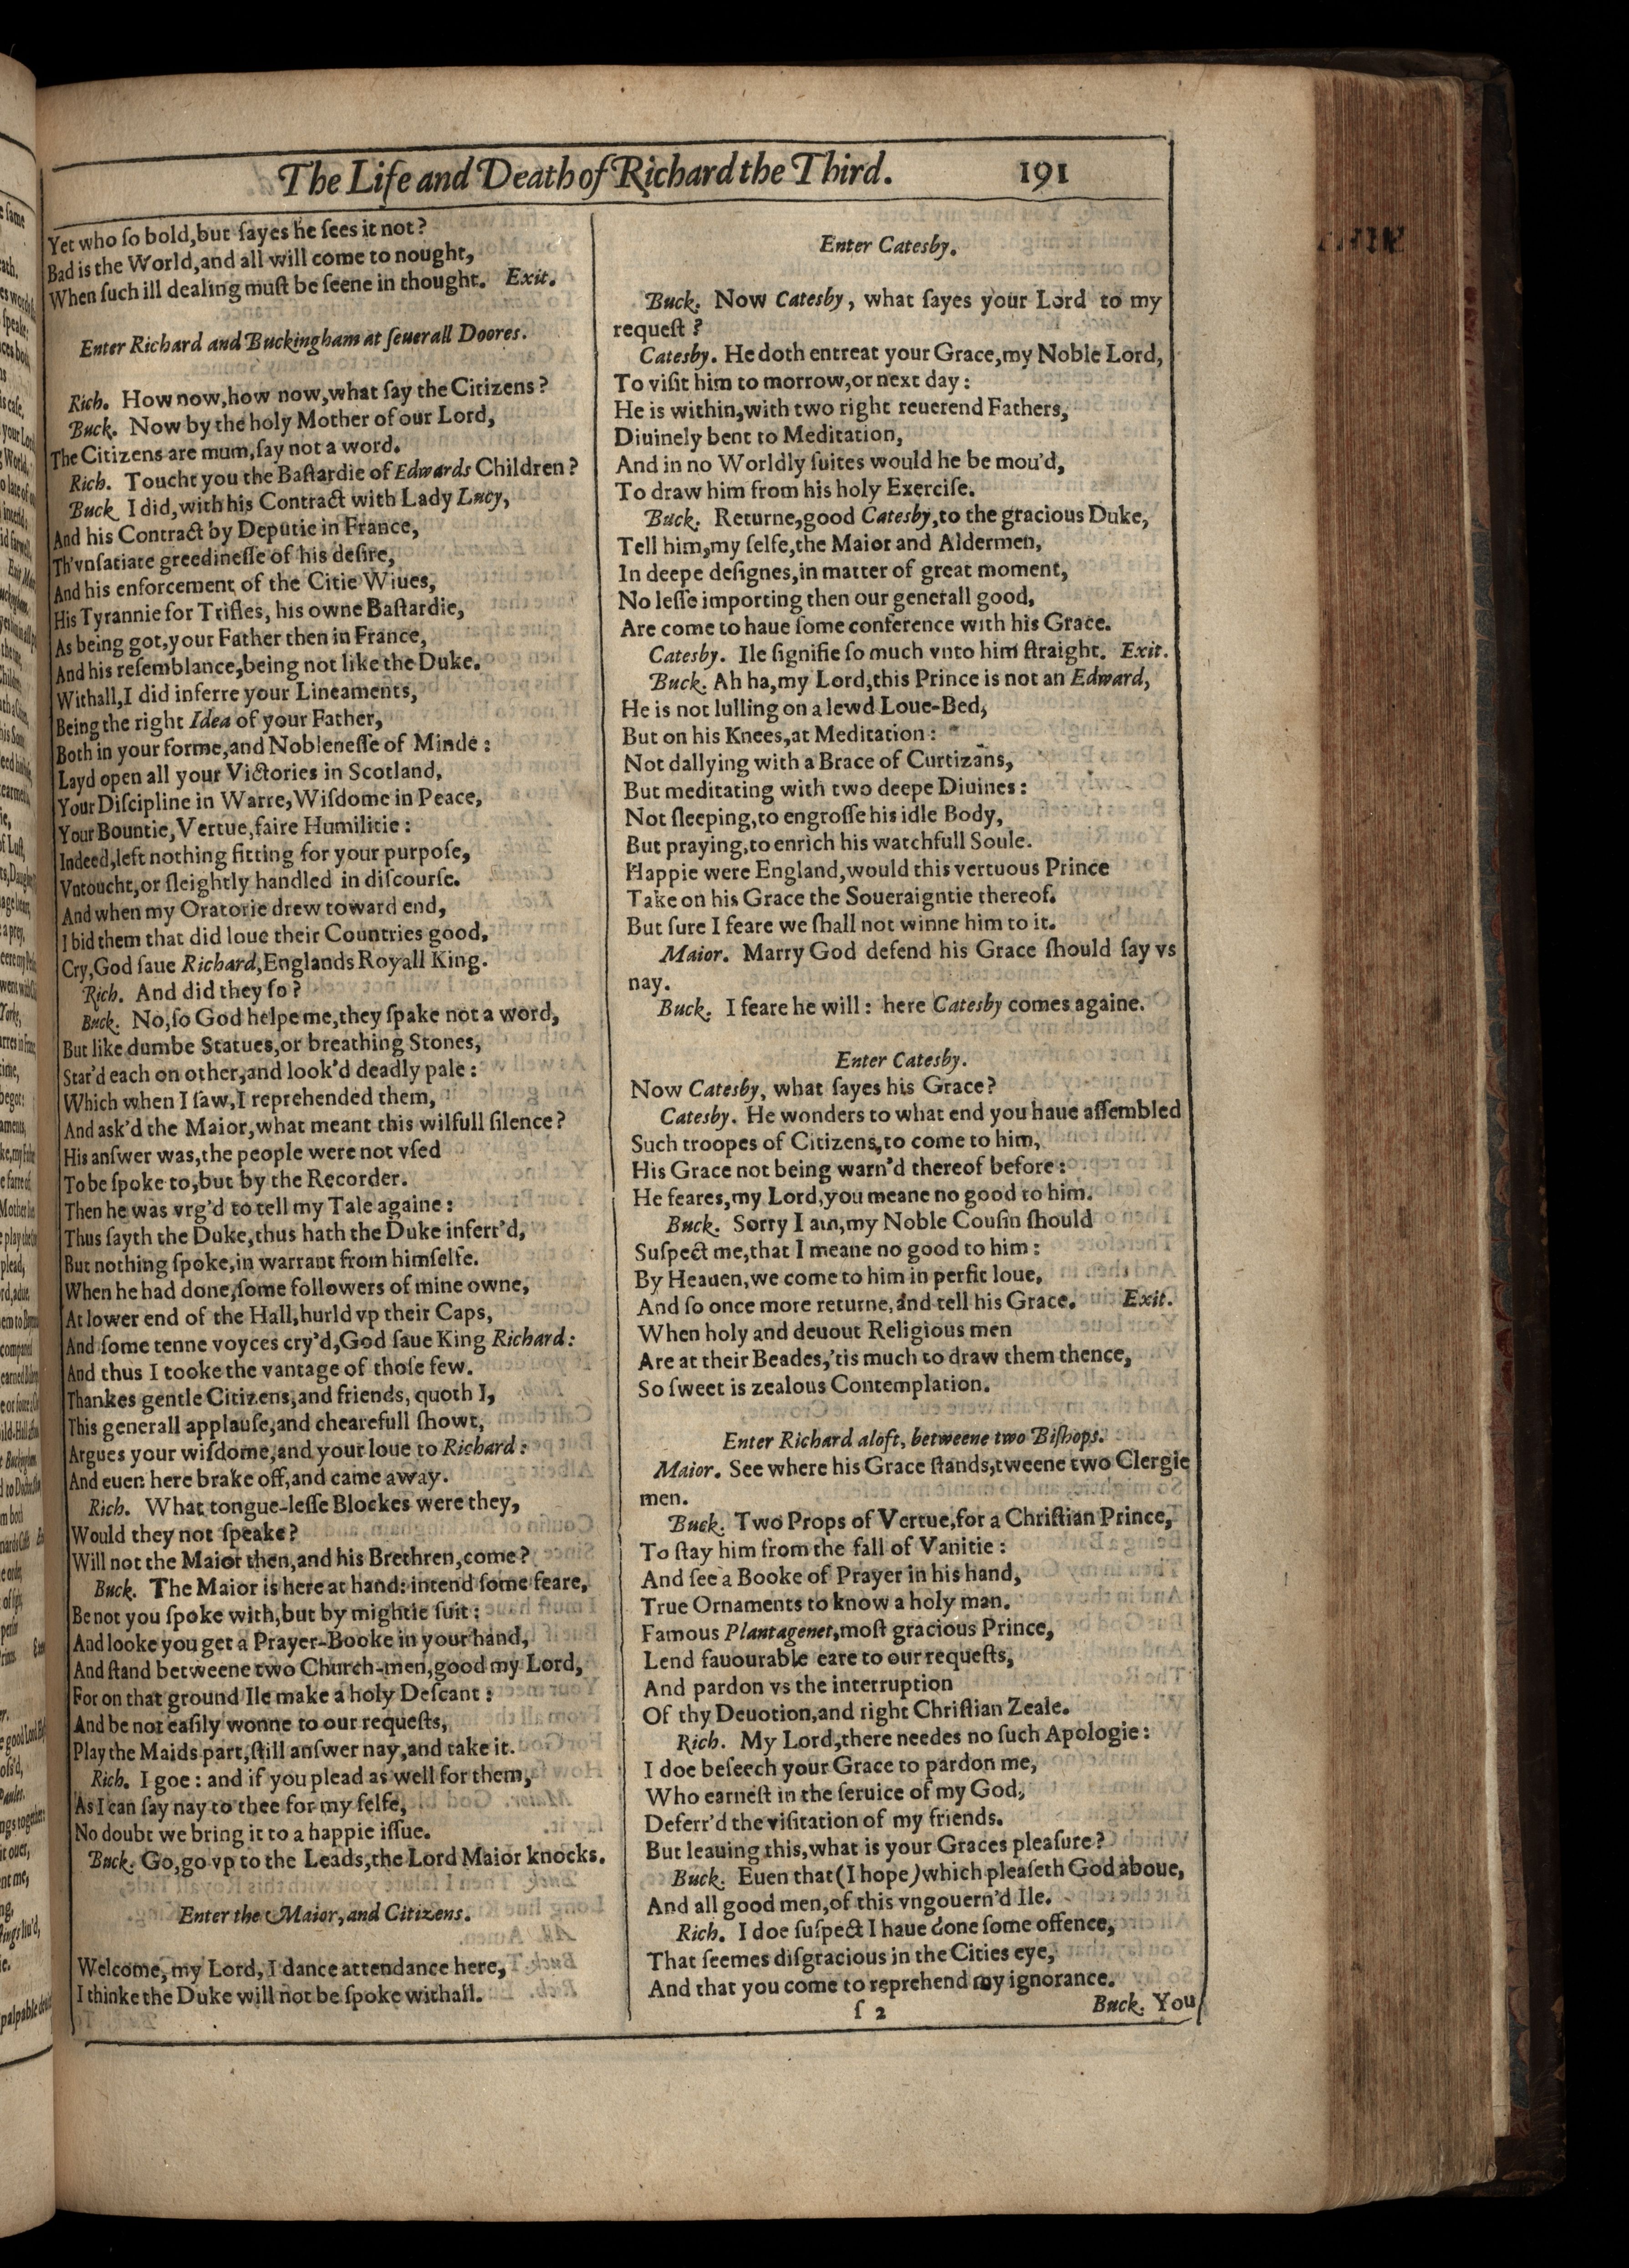 The Life and Death of Richard the Third. 191
Yet who ſo bold,but ſayes he ſees it not?
Bad is the World,and all will come to nought,
When ſuch ill dealing muſt be ſeene in thought. Exit.
Enter Richard and Buckingham at ſeuerall Doores.
Rich. How now,how now,what ſay the Citizens?
Buck. Now by the holy Mother of our Lord,
The Citizens are mum,ſay not a word.
Rich. Toucht you the Baſtardie of Edwards Children?
Buck. I did,with his Contract with Lady Lucy,
And his Contract by Deputie in France,
Th'vnſatiate greedineſſe of his deſire,
And his enforcement of the Citie Wiues,
His Tyrannie for Trifles, his owne Baſtardie,
As being got,your Father then in France,
And his reſemblance,being not like the Duke.
Withall,I did inferre your Lineaments,
Being the right Idea of your Father,
Both in your forme,and Nobleneſſe of Minde:
Layd open all your Victories in Scotland,
Your Diſcipline in Warre,Wiſdome in Peace,
Your Bountie,Vertue,faire Humilitie:
Indeed,left nothing fitting for your purpoſe,
Vntoucht,or ſleightly handled in diſcourſe.
And when my Oratorie drew toward end,
I bid them that did loue their Countries good,
Cry,God ſaue Richard,Englands Royall King.
Rich. And did they ſo?
Buck. No,ſo God helpe me,they ſpake not a word,
But like dumbe Statues,or breathing Stones,
Star'd each on other,and look'd deadly pale:
Which when I ſaw,I reprehended them,
And ask'd the Maior,what meant this wilfull ſilence?
His anſwer was,the people were not vſed
To be ſpoke to,but by the Recorder.
Then he was vrg'd to tell my Tale againe:
Thus ſayth the Duke,thus hath the Duke inferr'd,
But nothing ſpoke,in warrant from himſelfe.
When he had done,ſome followers of mine owne,
At lower end of the Hall,hurld vp their Caps,
And ſome tenne voyces cry'd,God ſaue King Richard:
And thus I tooke the vantage of thoſe few.
Thankes gentle Citizens,and friends, quoth I,
This generall applauſe,and chearefull ſhowt,
Argues your wiſdome,and your loue to Richard:
And euen here brake off,and came away.
Rich. What tongue-leſſe Blockes were they,
Would they not ſpeake?
Will not the Maior then,and his Brethren,come?
Buck. The Maior is here at hand: intend ſome feare,
Be not you ſpoke with,but by mightie ſuit:
And looke you get a Prayer-Booke in your hand,
And ſtand betweene two Church-men,good my Lord,
For on that ground Ile make a holy Deſcant:
And be not eaſily wonne to our requeſts,
Play the Maids part,ſtill anſwer nay,and take it.
Rich. I goe: and if you plead as well for them,
As I can ſay nay to thee for my ſelfe,
No doubt we bring it to a happie iſſue.
Buck. Go,go vp to the Leads,the Lord Maior knocks.
Enter the Maior,and Citizens.
Welcome, my Lord, I dance attendance here,
I thinke the Duke will not be ſpoke withall.
Enter Catesby.
Buck. Now Catesby, what ſayes your Lord to my
requeſt?
Catesby. He doth entreat your Grace,my Noble Lord,
To viſit him to morrow,or next day:
He is within,with two right reuerend Fathers,
Diuinely bent to Meditation,
And in no Worldly ſuites would he be mou'd,
To draw him from his holy Exerciſe.
Buck. Returne,good Catesby,to the gracious Duke,
Tell him,my ſelfe,the Maior and Aldermen,
In deepe deſignes,in matter of great moment,
No leſſe importing then our generall good,
Are come to haue ſome conference with his Grace.
Catesby. Ile ſignifie ſo much vnto him ſtraight. Exit.
Buck. Ah ha,my Lord,this Prince is not an Edward,
He is not lulling on a lewd Loue-Bed,
But on his Knees,at Meditation:
Not dallying with a Brace of Curtizans,
But meditating with two deepe Diuines:
Not ſleeping,to engroſſe his idle Body,
But praying,to enrich his watchfull Soule.
Happie were England,would this vertuous Prince
Take on his Grace the Soueraigntie thereof.
But ſure I feare we ſhall not winne him to it.
Maior. Marry God defend his Grace ſhould ſay vs
nay.
Buck. I feare he will: here Catesby comes againe.
Enter Catesby.
Now Catesby, what ſayes his Grace?
Catesby. He wonders to what end you haue aſſembled
Such troopes of Citizens,to come to him,
His Grace not being warn'd thereof before:
He feares,my Lord,you meane no good to him.
Buck. Sorry I am,my Noble Couſin ſhould
Suſpect me,that I meane no good to him:
By Heauen,we come to him in perfit loue,
And ſo once more returne,and tell his Grace. Exit.
When holy and deuout Religious men
Are at their Beades,'tis much to draw them thence,
So ſweet is zealous Contemplation.
Enter Richard aloft, betweene two Biſhops.
Maior. See where his Grace ſtands,tweene two Clergie
men.
Buck. Two Props of Vertue,for a Chriſtian Prince,
To ſtay him from the fall of Vanitie:
And ſee a Booke of Prayer in his hand,
True Ornaments to know a holy man.
Famous Plantagenet,moſt gracious Prince,
Lend fauourable eare to our requeſts,
And pardon vs the interruption
Of thy Deuotion,and right Chriſtian Zeale.
Rich. My Lord,there needes no ſuch Apologie:
I doe beſeech your Grace to pardon me,
Who earneſt in the ſeruice of my God,
Deferr'd the viſitation of my friends.
But leauing this,what is your Graces pleaſure?
Buck. Euen that (I hope) which pleaſeth God aboue,
And all good men,of this vngouern'd Ile.
Rich. I doe ſuſpect I haue done ſome offence,
That ſeemes diſgracious in the Cities eye,
And that you come to reprehend my ignorance.
ſ 2 Buck. You